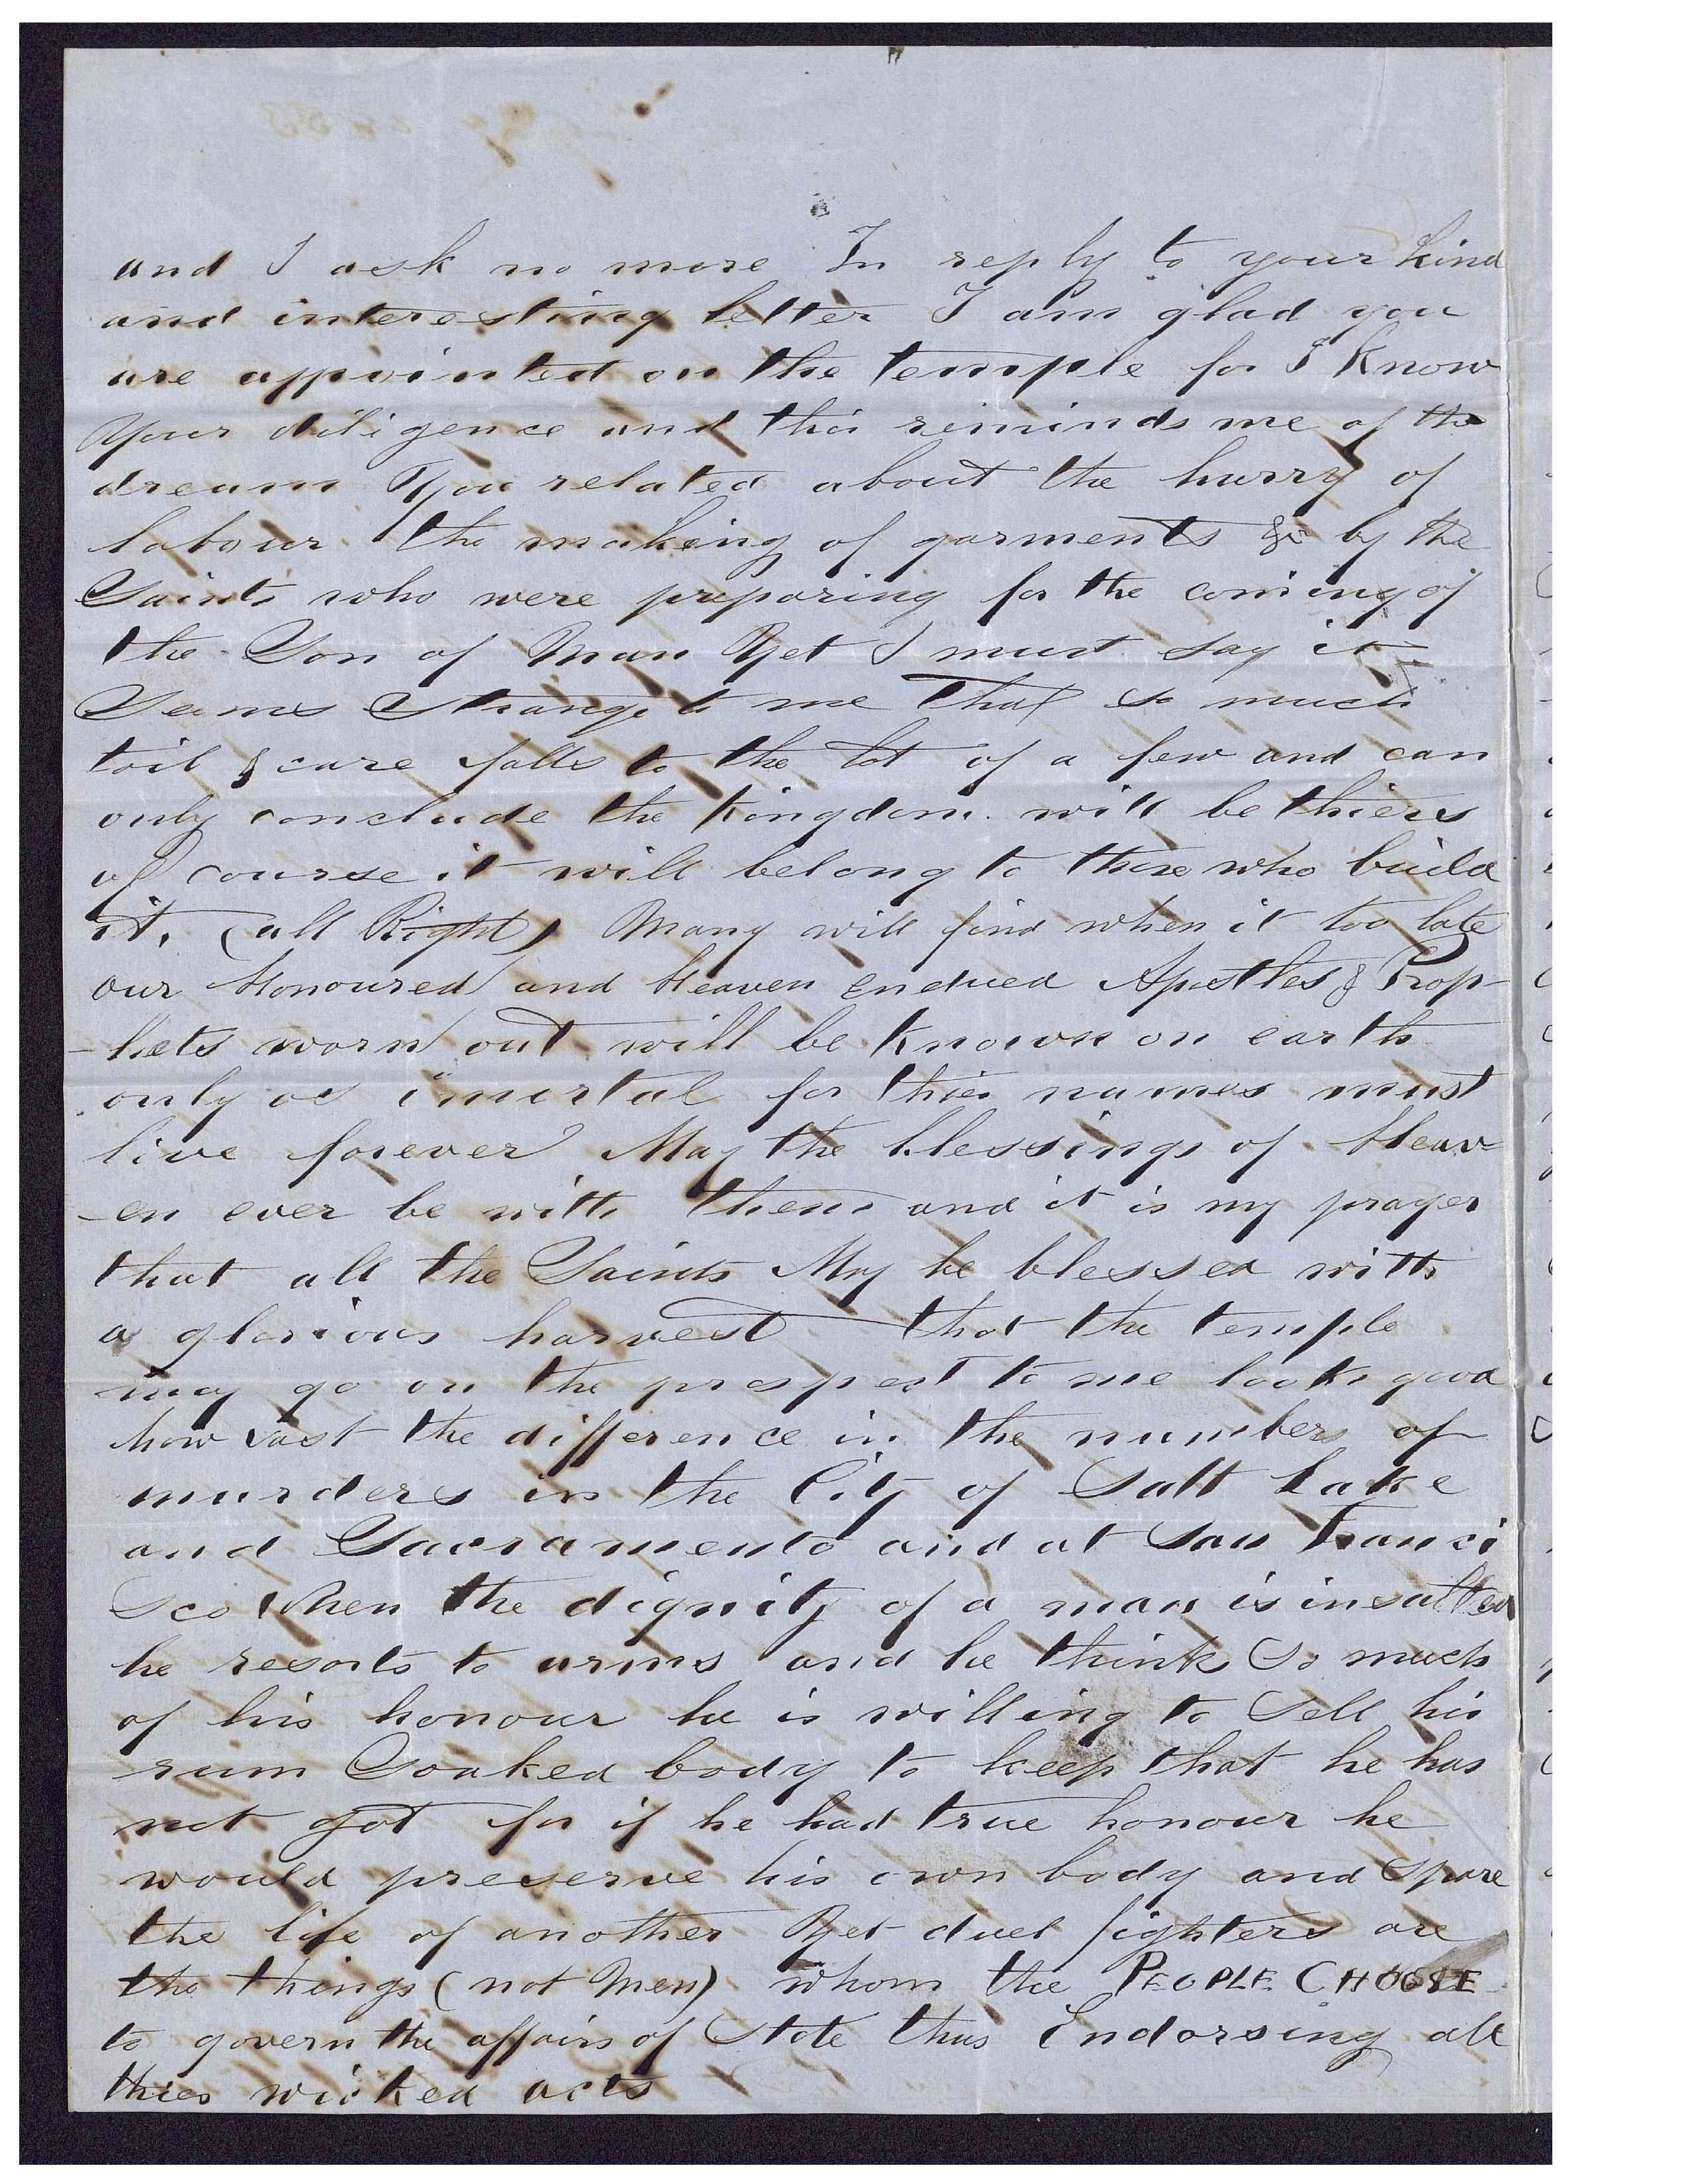 and I ask no more In reply to your kind
and interesting letter I am glad you
are appointed on the temple for I know
Your diligence and this reminds me of the
dream You related about the hurry of
labour the making of garments &c by the
Saints who were preparing for the coming of
the Son of Man Yet I must say it
Seems Strange to me That so much
toil & care falls to the lot of a few and can
only conclude the kingdom will be thiers
of course it will belong to those who build
it. (all Right) Many will find when it too late
our Honoured and Heaven endued Apostles & Prop-
-hets worn out will be known on earth
only as imortal for thier names must
live forever May the blessings of Heav-
-en ever be with them and it is my prayer
that all the Saints May be blessed with
a glorious harvest that the temple
may go on the prospect to me looks good
how vast the difference in the numbers of
murders in the City of Salt Lake
and Sacramento and at San Franci
Sco When the dignity of a man is insulted
he resorts to arms and he think So much
of his honour he is willing to Sell his
rum Soaked body to keep that he has
not got for if he had true honour he
would preserve his own body and Spare
the life of another Yet duel fighters are
the things (not Men) whom the PEOPLE CHOOSE
to govern the affairs of State thus Endorsing all
thier wicked acts